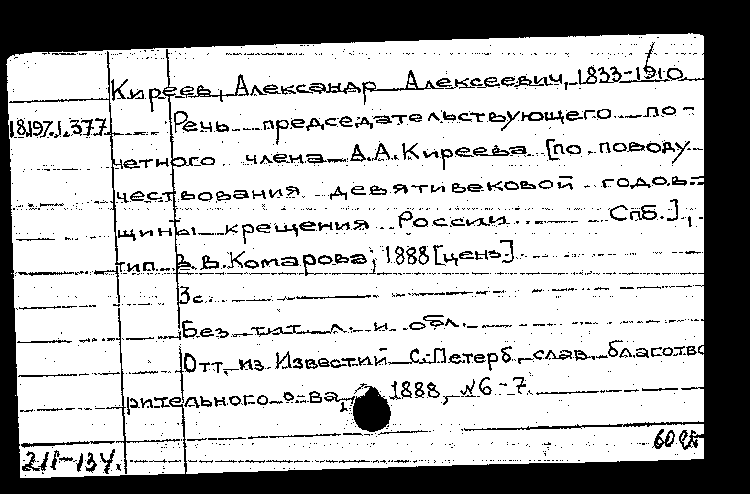 Киреев, Александр Алексеевич, 1833-1910
18.197.1.377
Речь председательствующего по-
четного члена А.А.Киреева [по поводу
чествования девятивековой годов-
щины крещения России. Спб.],
тип. В.В.Комарова, 1888 [ценз]
3с.
Без тит. л. и обл.
Отт. из Известий С.-Петерб. слав. благотво
рительного о-ва, 1888, №6-7